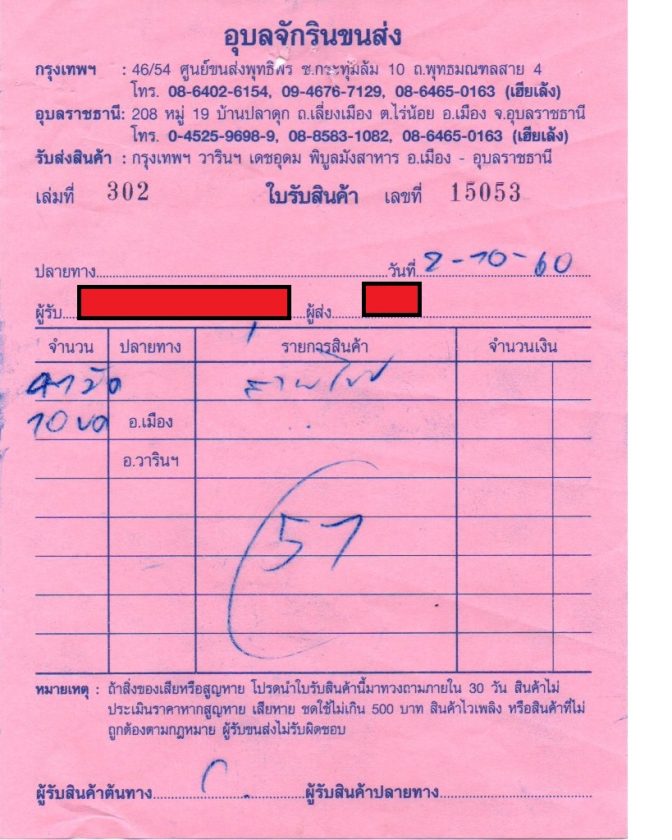 อุบลจักรินขนส่ง
กรุงเทพฯ : 46/54 ศูนย์ขนส่งพุทธิพร ซ.กระทุ่มล้ม 10 ถ.พุทธมณฑลสาย 4
โทร. 08-6402-6154, 09-4676-7129, 08-6465-0163 (เฮียเล้ง)
อุบลราชธานี: 208 หมู่ 19 บ้านปลาดุก ถ.เลี่ยงเมือง ต.ไร่น้อย อ.เมือง จ.อุบลราชธานี
โทร. 0-4525-9698-9, 08-8583-1082, 08-6465-0163 (เฮียเล้ง)
รับส่งสินค้า : กรุงเทพฯ วารินฯ เดชอุดม พิบูลมังสาหาร อ.เมือง - อุบลราชธานี
เล่มที่ 302 ใบรับสินค้า เลขที่ 15053
ปลายทาง วันที่ 2-10-60
ผู้รับ ผู้ส่ง
จำนวน ปลายทาง รายการสินค้า จำนวนเงิน
สายไฟ
10 อ.เมือง
อ.วารินฯ
57
หมายเหตุ : ถ้าสิ่งของเสียหรือสูญหาย โปรดนำใบรับสินค้านี้มาทวงถามภายใน 30 วัน สินค้าไม่
ประเมินราคาหากสูญหาย เสียหาย ชดใช้ไม่เกิน 500 บาท สินค้าไวเพลิง หรือสินค้าที่ไม่
ถูกต้องตามกฎหมาย ผู้รับขนส่งไม่รับผิดชอบ
ผู้รับสินค้าต้นทาง ผู้รับสินค้าปลายทาง